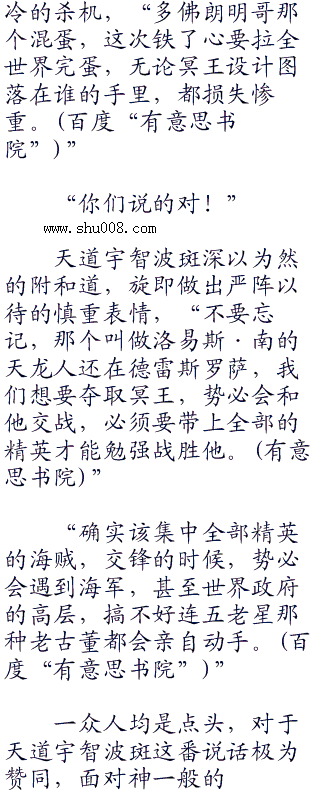 冷的杀机，“多佛朗明哥那
个混蛋，这次铁了心要拉全
世界完蛋，无论冥王设计图
落在谁的手里，都损失惨
重。(百度“有意思书
院”)”
“你们说的对！”
www.shu008.com
天道宇智波斑深以为然
的附和道，旋即做出严阵以
待的慎重表情，“不要忘
记，那个叫做洛易斯·南的
天龙人还在德雷斯罗萨，我
们想要夺取冥王，势必会和
他交战，必须要带上全部的
精英才能勉强战胜他。(有意
思书院)”
“确实该集中全部精英
的海贼，交锋的时候，势必
会遇到海军，甚至世界政府
的高层，搞不好连五老星那
种老古董都会亲自动手。(百
度“有意思书院”)”
一众人均是点头，对于
天道宇智波斑这番说话极为
赞同，面对神一般的